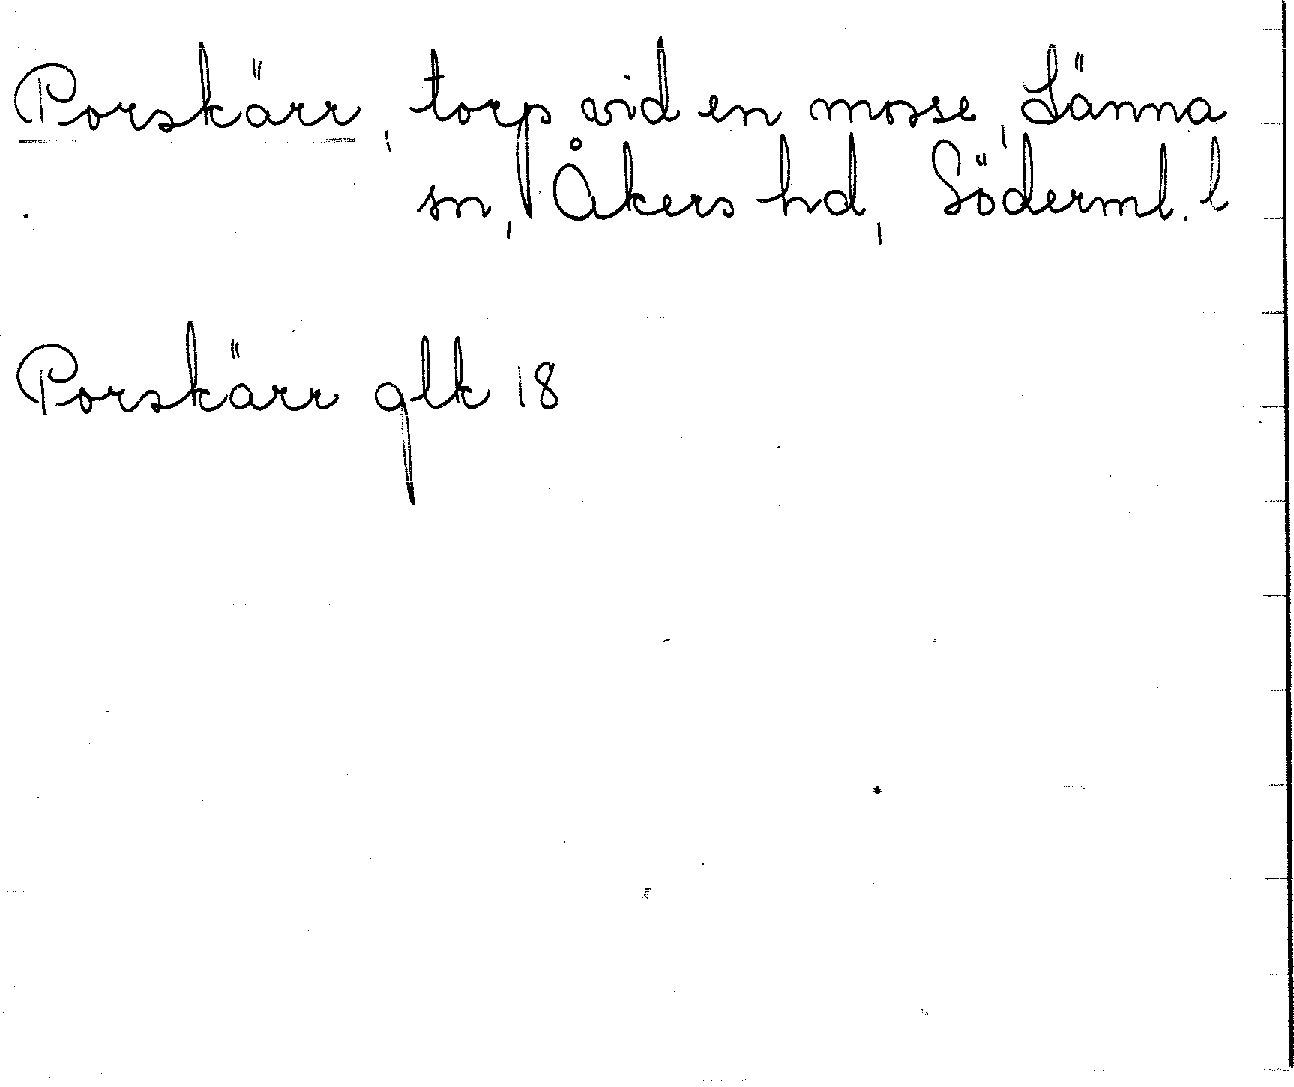 Porskärr, torp vid en mosse, Länna
sn, Åkers hd, Söderml. l
Porskärr glk 18